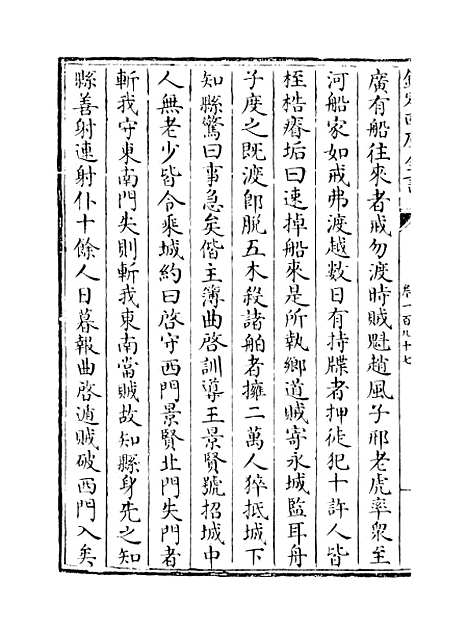 欽定四庫全書
卷一百八十七
廣有船往來者戒勿渡時賊魁趙風子邢老虎率衆至
河船家如戒弗渡越數日有持牒者押徒犯十許人皆
桎梏瘠垢曰速掉船來是所執鄉道賊寄永城監耳舟
子度之既渡郎脱五木殺諸舶者擁二萬人猝抵城下
知縣驚曰事急矣偕主簿曲啓訓導王景賢號招城中
人無老少皆令乘城約曰啓守西門景賢北門失門者
斬我守東南門失則斬我東南當賊故知縣身先之知
縣善射連射仆十餘人日暮報曲啓逃賊破西門入矣